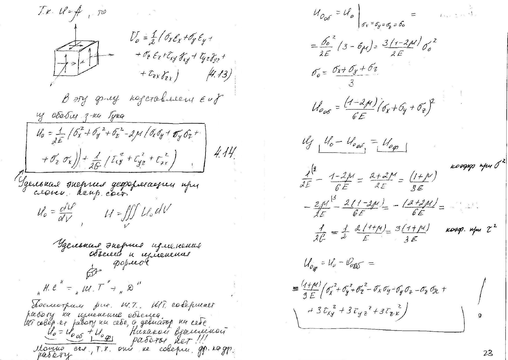 Т.к. U=A, то
U₀ = 1/2 (σxεx + σyεy +
+ σzεz + τxyγxy + τyzγyz +
+ τzxγzx) (4.13)
В эту ф-лу подставляем ε и γ
из обобщ. з-на Гука
U₀ = 1/2E (σx² + σy² + σz² - 2μ(σxσy + σyσz +
+ σzσx)) + 1/2G (τxy² + τyz² + τzx²) 4.14
Удельная энергия деформации при
сложн. напр. сост.
U₀ = dU/dV , U = ∭ U₀ dV
V
Удельная энергия изменения
объема и изменения
формы
„Н.С" = „Ш.Т" + „D"
Посмотрим рис. Ш.Т., Ш.Т. совершает
работу на изменение объема.
Ш.Т. совер-ет работу на себе, а девиатор на себе
U₀ = U₀об + U₀ф Никакой взаимной
работы нет!!!
Можно скл., т.к. они не соверш. др. на др.
работу
U₀об = U₀ | σx=σy=σz=σ₀ =
= σ₀²/2E (3 - 6μ) = 3(1-2μ)/2E σ₀²
σ₀ = σx+σy+σz / 3
U₀об = (1-2μ)/6E (σx + σy + σz)²
Из U₀ - U₀об = U₀ф
1/2E - 1-2μ/6E = 2+2μ/6E = (1+μ)/3E коэфф. при σ²
- 2μ/2E - 2(1-2μ)/6E = - (2+2μ)/6E =
1/2G = 1/2 2(1+μ)/E = 3(1+μ)/3E коэф. при τ²
U₀ф = U₀ - U₀об =
= 1+μ/3E (σx² + σy² + σz² - σxσy - σyσz - σzσx +
+ 3τxy² + 3τyz² + 3τzx²) !
23